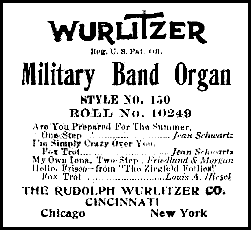 WURLITZER
Reg. U. S. Pat. Off.
Military Band Organ
STYLE NO. 150
ROLL NO. 10249
Are You Prepared For The Summer,
One Step ........ Jean Schwartz
I'm Simply Crazy Over You,
Fox Trot ........ Jean Schwartz
My Own Iona, Two-Step, Friedland & Morgan
Hello, Frisco—from "The Ziegfeld Follies"
Fox Trot ........ Louis A. Hirsch
THE RUDOLPH WURLITZER CO.
CINCINNATI
Chicago New York